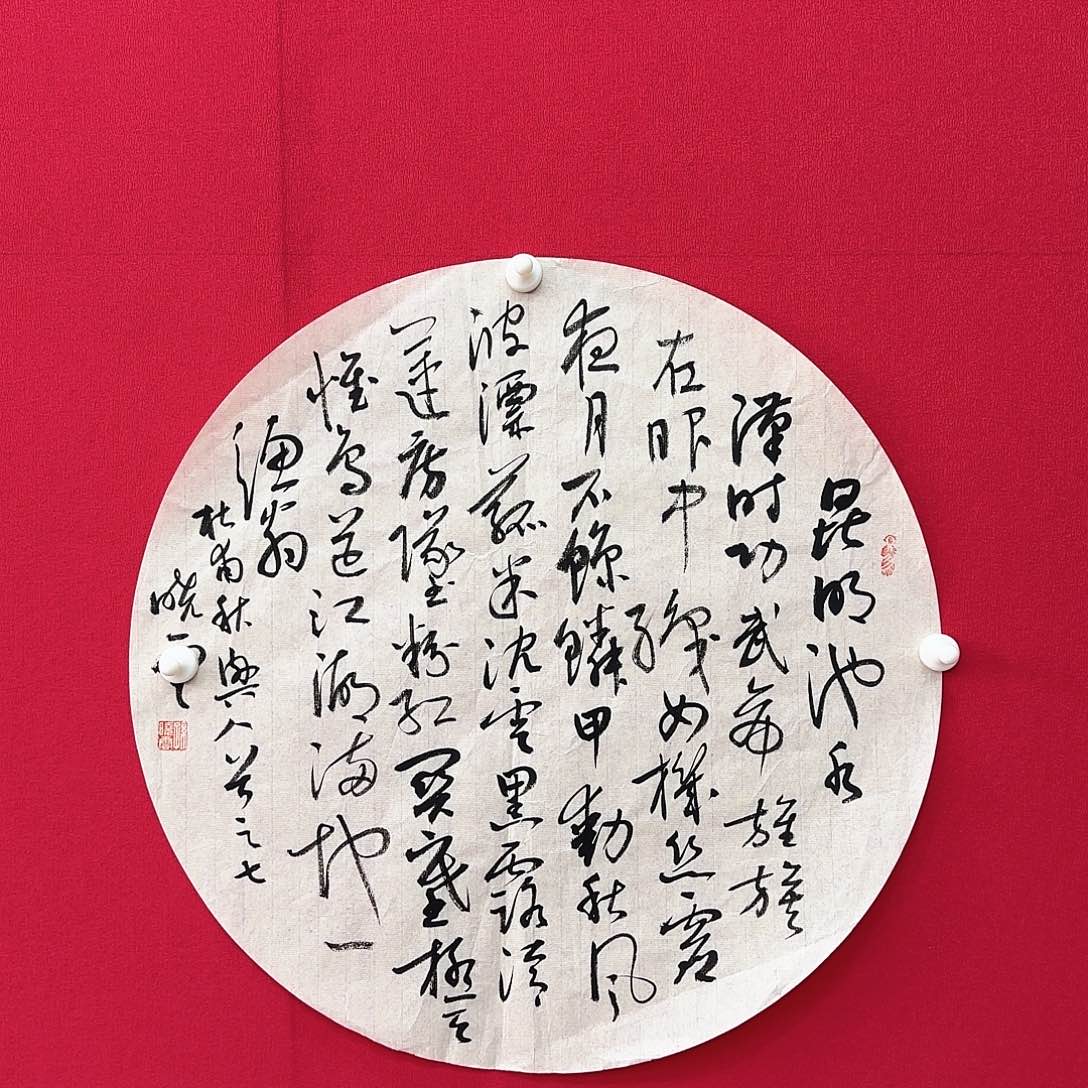 昆明池水
漢时功武帝旌旗
在眼中織女機丝虚
夜月石鲸鳞甲動秋风
波漂菰米沈雲黑露冷
蓮房墜粉红関塞極天
惟鸟道江湖满地一
漁翁
杜甫秋興八首之七
晓雲